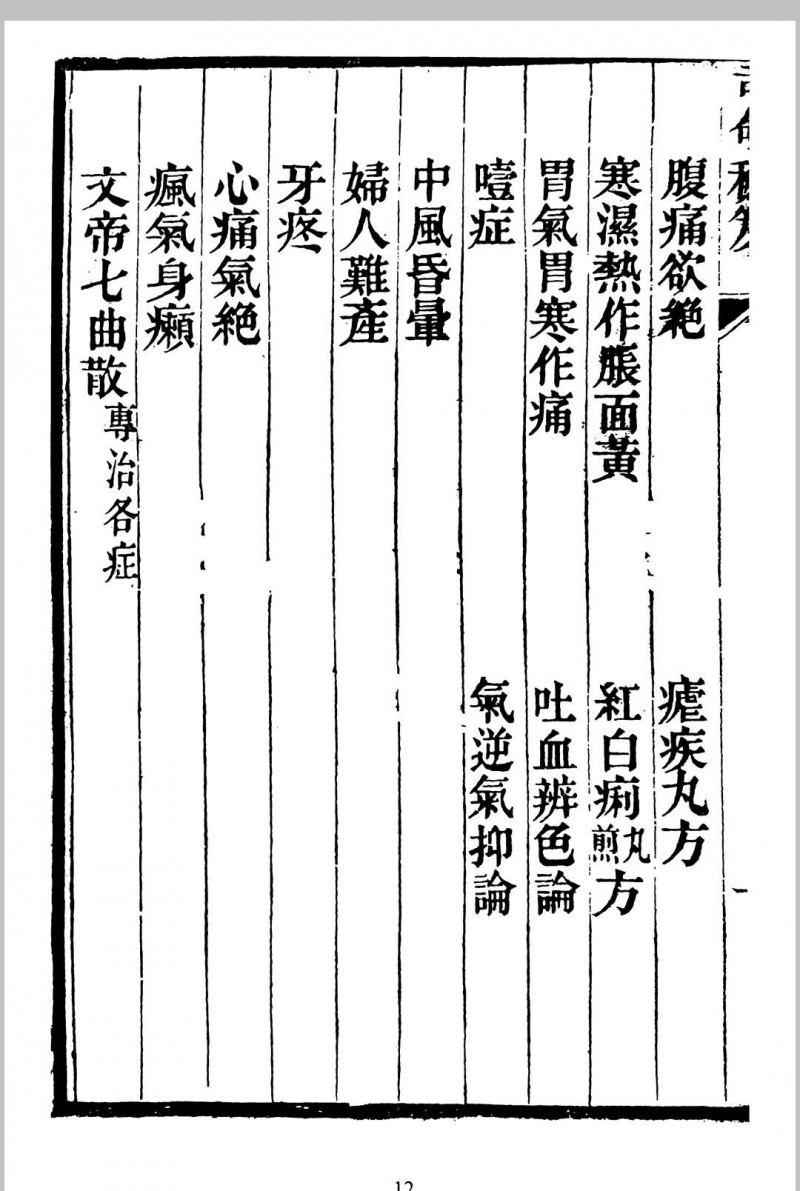 腹痛欲絶
瘧疾丸方
寒濕熱作脹面黃
紅白痢丸煎方
胃氣胃寒作痛
吐血辨色論
噎症
氣逆氣抑論
中風昏暈
婦人難產
牙疼
心痛氣絕
瘋氣身癩
文帝七曲散專治各症
12